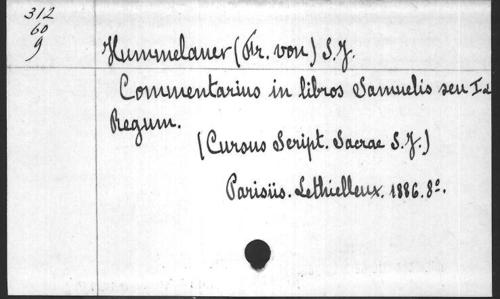 312
60
9
Hummelauer (Fr. von) S.J.
Commentarius in libros Samuelis seu I et
Regum.
(Cursus Script. Sacrae S.J.)
Parisiis. Lethielleux. 1886. 8º.